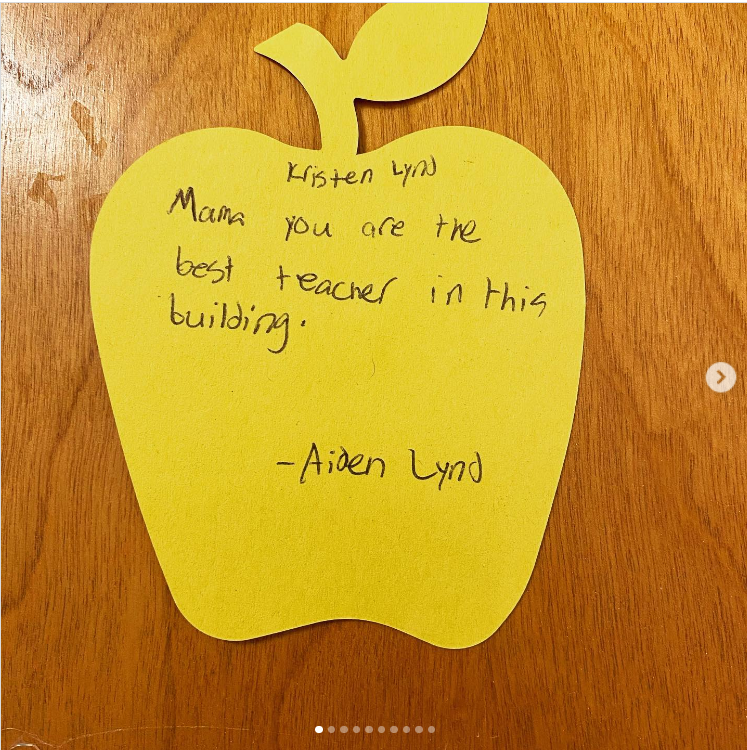 Kristen Lynd
Mama you are the
best teacher in this
building.
-Aiden Lynd